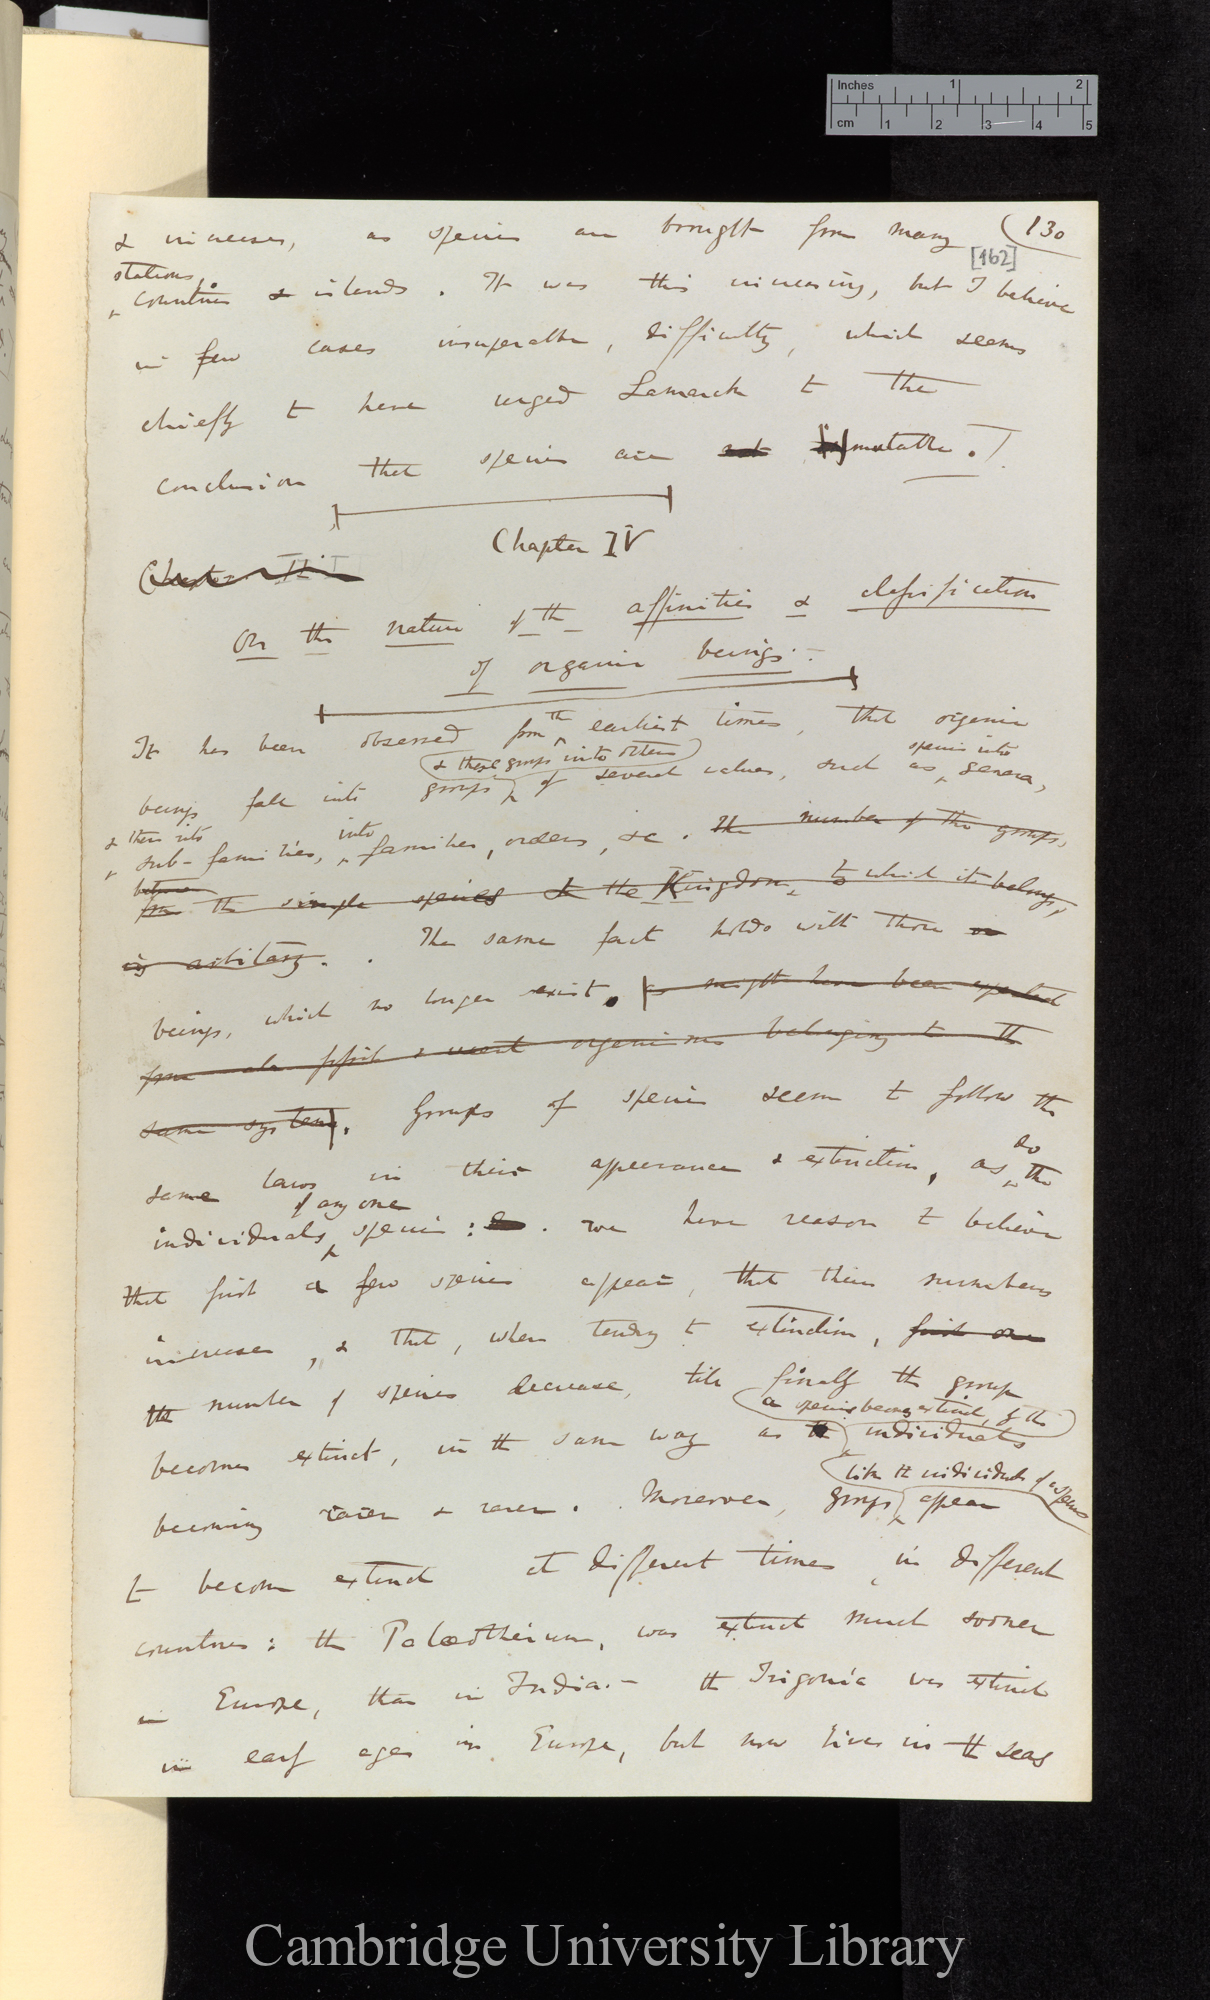 Inches 1 2
cm 1 2 3 4 5
130
[162]
& increases, as species are brought from many
stations,
countries & islands. It was this increasing, but I believe
in few cases insuperable, difficulty, which seems
chiefly to have urged Lamarck to the
conclusion that species are not mutable.
Chapter IV
Chapter III
On the nature of the affinities & classification
of organic beings.—
It has been observed from the earliest times, that organic
& these groups into others
species into
beings fall into groups of several values, such as genera,
& then into
into
sub-families, families, orders, &c. The number of the groups,
between
from the single species to the Kingdom, to which it belongs,
is arbitrary. The same fact holds with those
beings, which no longer exist. as might have been expected
from all fossil & recent organisms belonging to the
same system. Groups of species seem to follow the
do
same laws in their appearance & extinction, as the
of any one
individuals species: we have reason to believe
that first a few species appear, that their numbers
increase, & that, when tending to extinction, first one
the number of species decrease, till finally the group
a species becomes extinct, by the
becomes extinct, in the same way as the individuals
like the individuals of a species
becoming rarer & rarer. Moreover, groups appear
to become extinct at different times in different
countries: the Palæotherium, was extinct much sooner
in Europe, than in India.— the Trigonia was extinct
in early ages in Europe, but now lives in the seas
Cambridge University Library